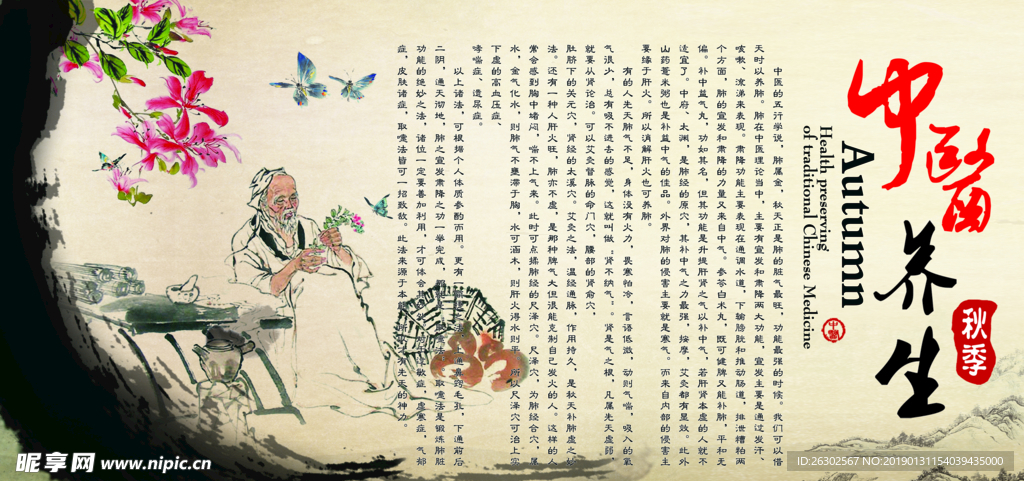 中醫
养生
秋季
Autumn
Health preserving
of traditional Chinese Medicine
中医的五行学说，肺属金，秋天正是肺的脏气最旺，功能最强的时候。我们可以借
天时以养肺。肺在中医理论当中，主要有宣发和肃降两大功能，宣发主要是通过发汗、
咳嗽、流涕来表现。肃降功能主要表现在通调水道，下输膀胱和推动肠道，排泄糟粕两
个方面，肺的宣发和肃降的力量又来自中气。参苓白术丸，既可健脾又能补肺，平和无
偏。补中益气丸，功如其名，但其功能是升提肝肾之气以补中气，若肝肾本虚的人就不
适宜了。中府、太渊，是肺经的原穴，其补中气之力最强，按摩，艾灸都有显效。此外
山药薏米粥也是补益中气的佳品。外界对肺的侵害主要就是寒气。而来自内部的侵害主
要缘于肝火。所以消解肝火也可养肺。
有的人先天肺气不足，身体没有火力，畏寒怕冷，言语低微，动则气喘，吸入的氧
气很少，总有吸不进去的感觉，这就叫做，肾不纳气。肾是气之根，凡属先天虚弱，
就要从肾论治。可以艾灸督脉的命门穴，腰部的肾俞穴，
肚脐下的关元穴，肾经的太溪穴。艾灸之法，温经通脉，作用持久，是秋天补肺虚之妙
法。还有一种人肝火旺，肺亦不虚，是那种脾气大但很能克制自己发火的人。这样的人
常会感到胸中堵闷，喘不上气来。此时可点揉肺经的尺泽穴。尺泽穴，为肺经合穴，属
水，金气化水，则肺气不壅滞于胸，水可涵木，则肝火得水则平，所以尺泽穴可治上实
下虚的高血压症、
哮喘症、遗尿症。
以上诸法，可根据个人体质参酌而用。更有 毛孔，下通前后
二阴，通天彻地，肺之宣发肃降之功一举完成， 取嚏法是锻炼肺脏
功能的绝妙之法，诸位一定要善加利用，才可体会 敏症，虚寒症，气郁
症，皮肤诸症，取嚏法皆可一招致敌。此法来源于本能， 有先天的神力。
昵享网 www.nipic.cn
ID:26302567 NO:20190131154039435000